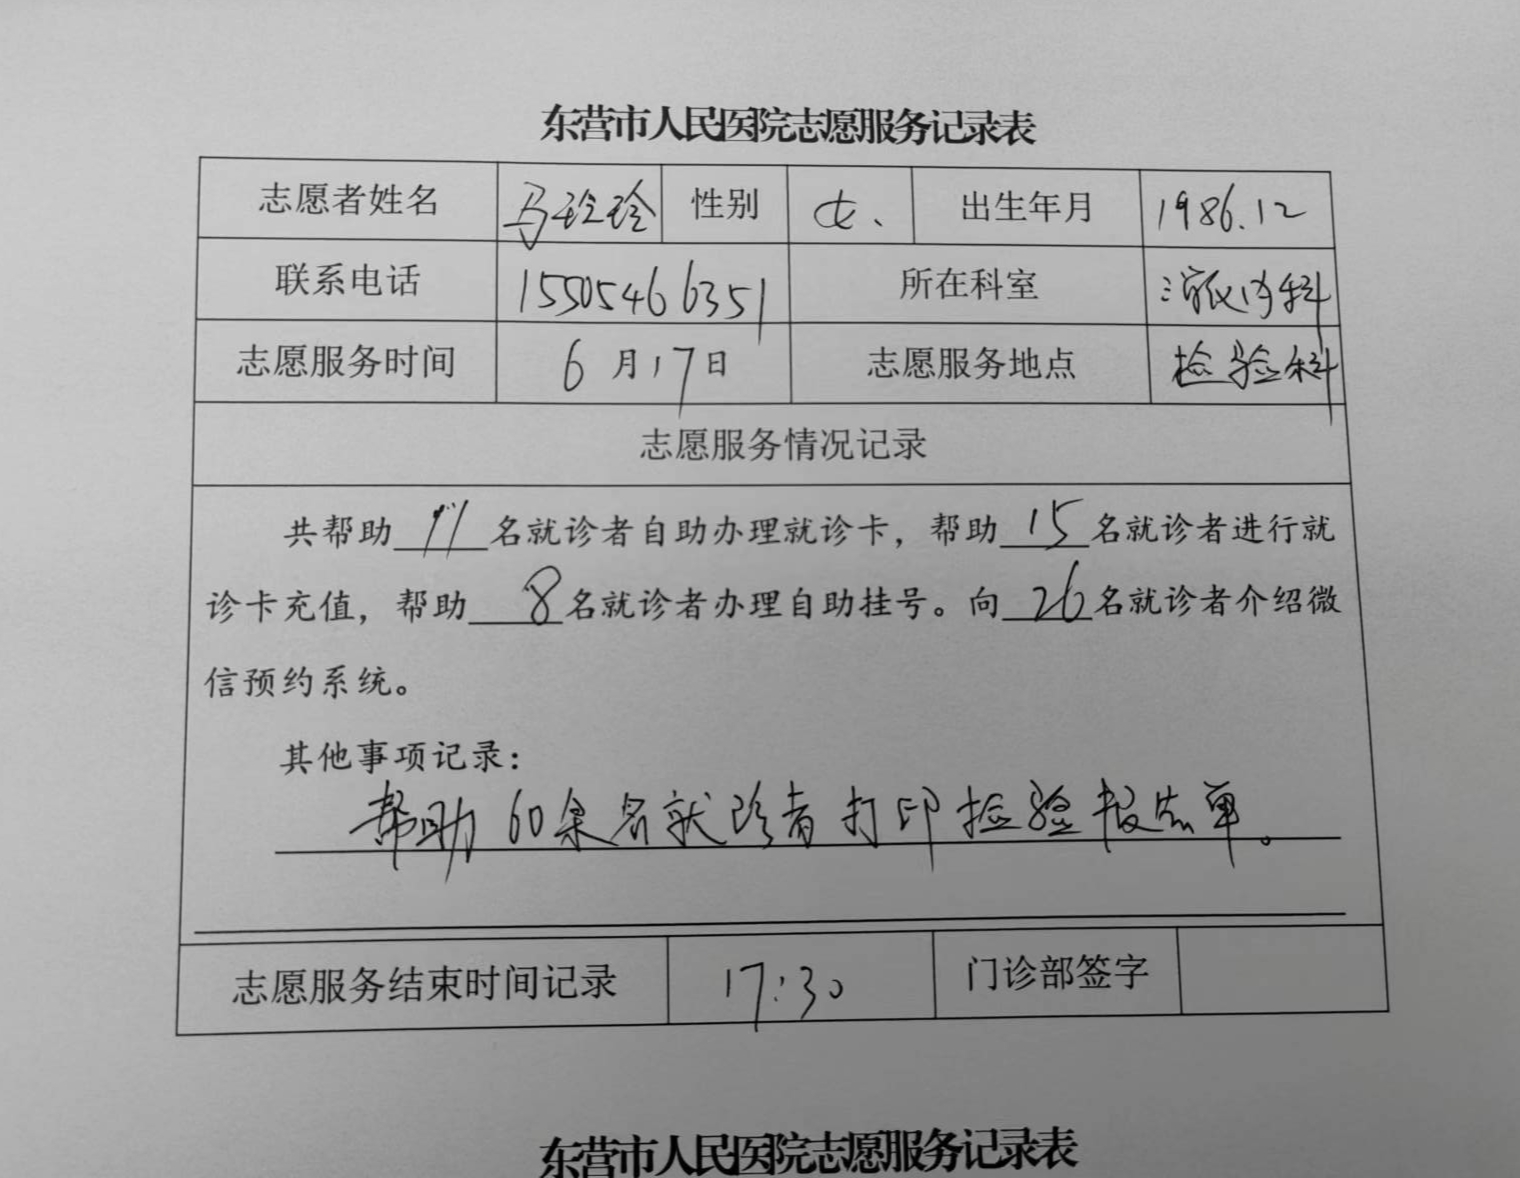 东营市人民医院志愿服务记录表
志愿者姓名 马玲玲 性别 女、 出生年月 1986.12
联系电话 15505466351 所在科室 内科
志愿服务时间 6月17日 志愿服务地点 检验科
志愿服务情况记录
共帮助 11 名就诊者自助办理就诊卡，帮助 15 名就诊者进行就
诊卡充值，帮助 8 名就诊者办理自助挂号。向 26 名就诊者介绍微
信预约系统。
其他事项记录：
帮助60余名就诊者打印检验报告单。
志愿服务结束时间记录 17:30 门诊部签字
东营市人民医院志愿服务记录表